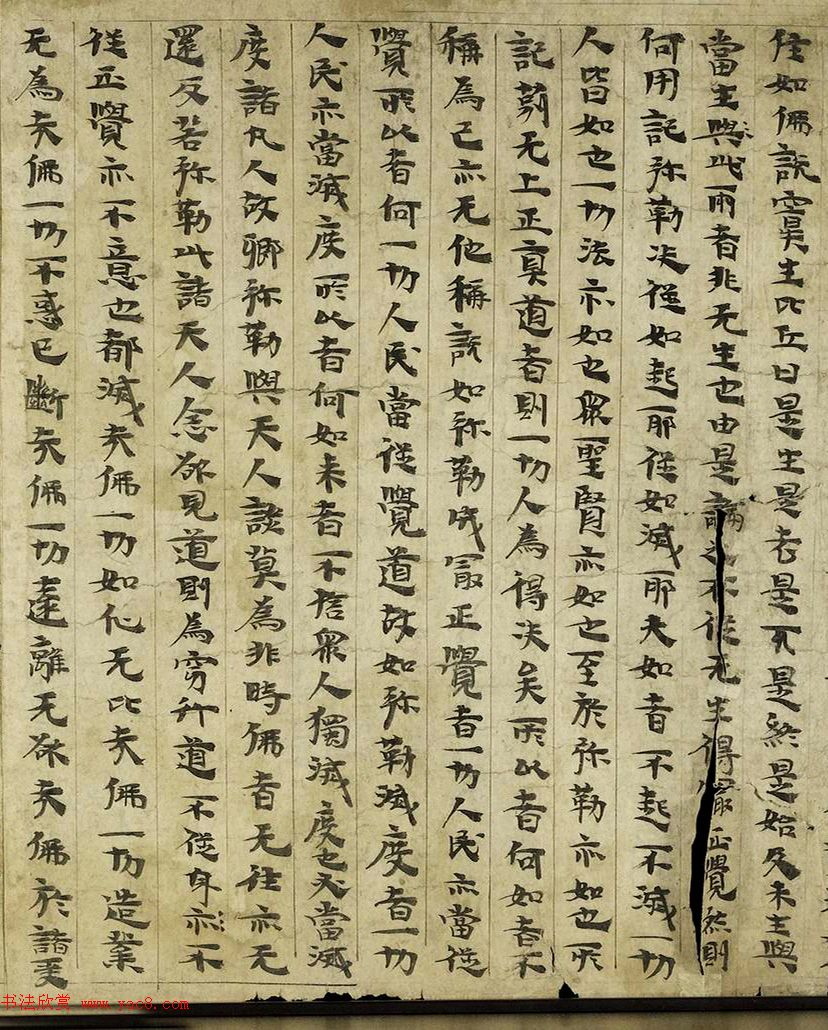 住如佛說冥生比丘曰是生是老是死是終是始及未生與
當生與此兩者非无生也由是論之不從无生得最正覺然則
何用記弥勒决從如起耶從如滅耶夫如者不起不滅一切
人皆如也一切法亦如也眾聖賢亦如也至於弥勒亦如也所
記莂无上正真道者則一切人為得决矣所以者何如者不
稱為己亦无他稱說如弥勒成冣正覺者一切人民亦當從
覺所以者何一切人民當從覺道故如弥勒滅度者一切
人民亦當滅度所以者何如来者不捨眾人獨滅度也必當滅
度諸凡人故卿弥勒與天人談莫為非時佛者无往亦无
還反若弥勒此諸天人念欲見道則為行道不從身亦不
從正覺亦不意也都滅夫佛一切如化无比夫佛一切造業
无為夫佛一切不惑已斷夫佛一切達離无欲夫佛於諸受
书法欣赏 www.yac8.com